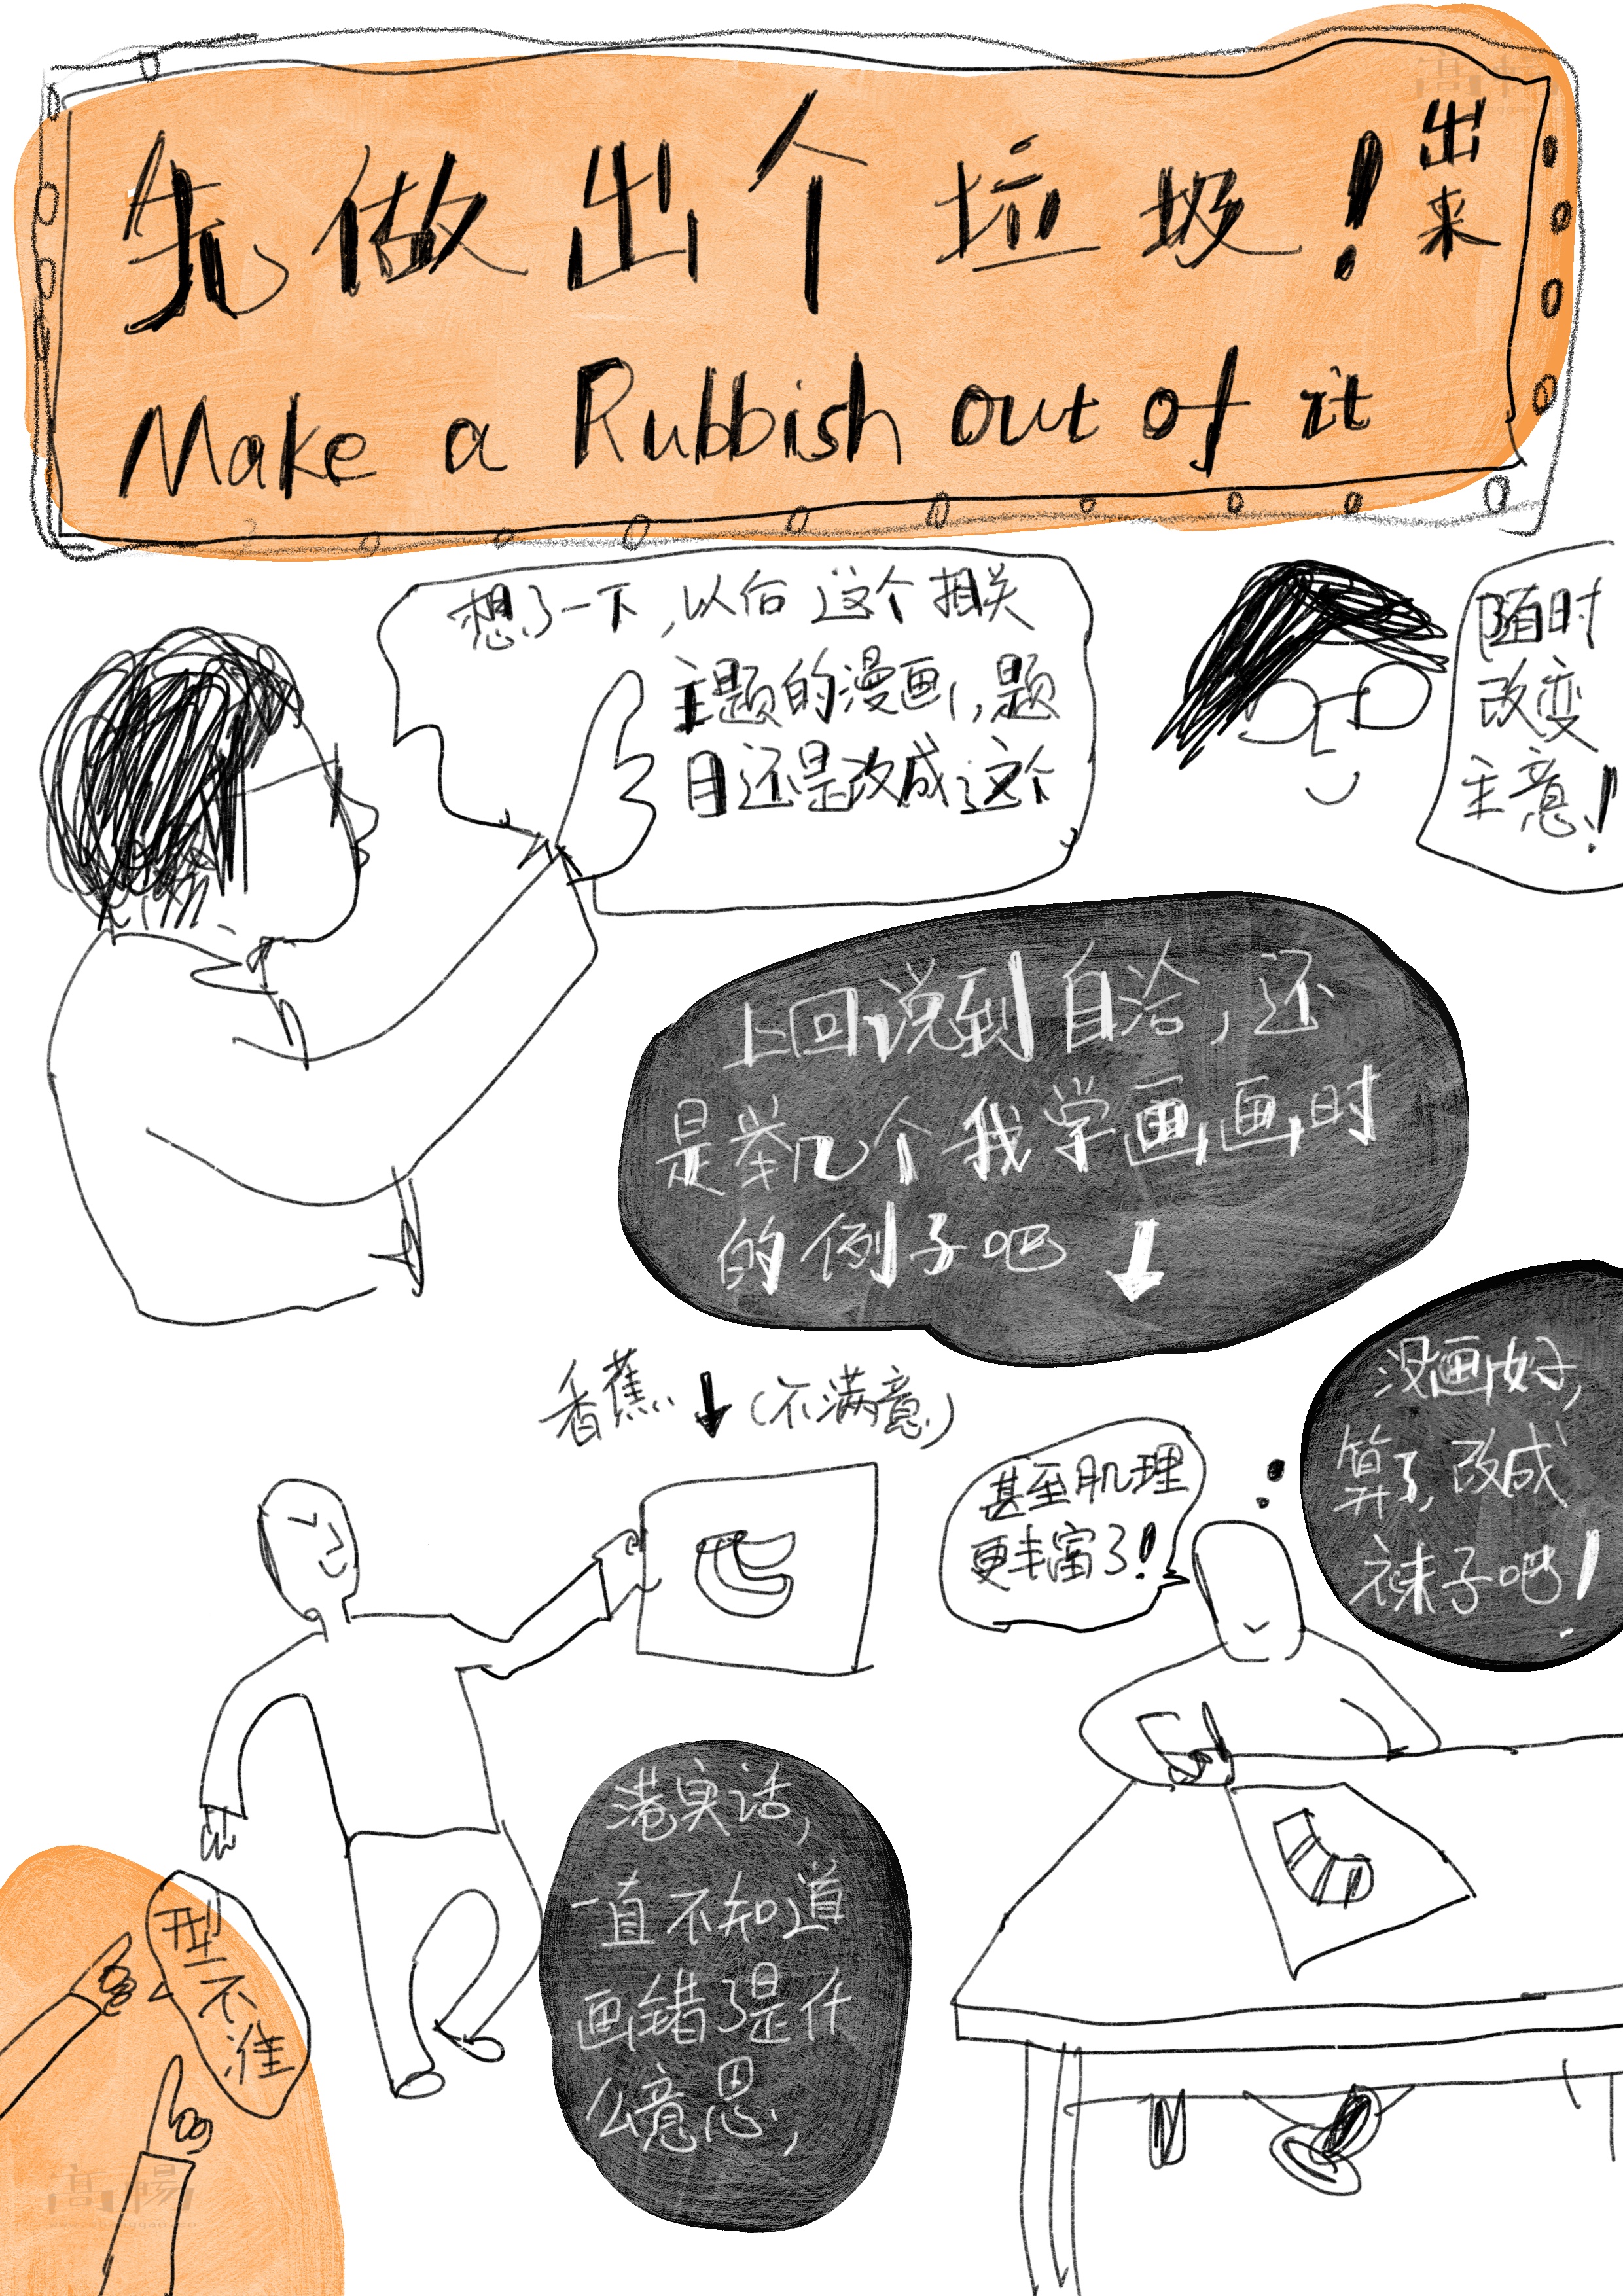 先做出个垃圾!出来
Make a Rubbish out of it
想了一下,以后这个相关
主题的漫画,题
目还是改成这个
随时
改变
主意!
上回说到自洽,还
是举几个我学画画时
的例子吧↓
香蕉↓(不满意)
没画好,
算了,改成
袜子吧!
甚至肌理
更丰富了!
港实话,
一直不知道
画错了是什
么意思,
型不准
高暢